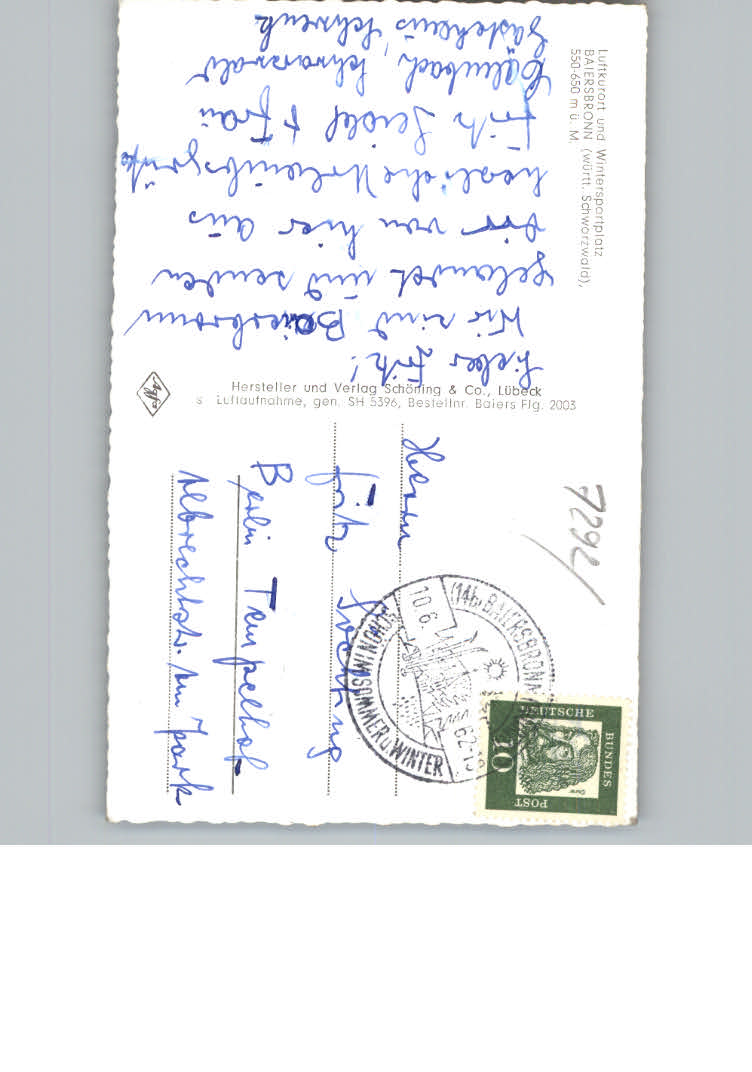 Luftkurort und Wintersportplatz
BAIERSBRONN (württ. Schwarzwald),
550-650 m ü. M.
Lieber Fritz!
Wir sind Baiersbronn
gelandet und senden
dir von hier aus
herzliche Urlaubsgrüße
Fritz Seidel + Frau
Schwarzwald
Gästehaus Schrenk
Hersteller und Verlag Schöning & Co., Lübeck
s Luftaufnahme, gen. SH 5396, Bestellnr. Baiers Flg. 2003
Agfa
7292/
Herrn
Fritz
Berlin Tempelhof
Albrechtstr. Am Park
(14b) BAIERSBRONN
10.6.
62-19
SCHÖN IN SOMMER U. WINTER
DEUTSCHE
BUNDES
POST
10
Dürer